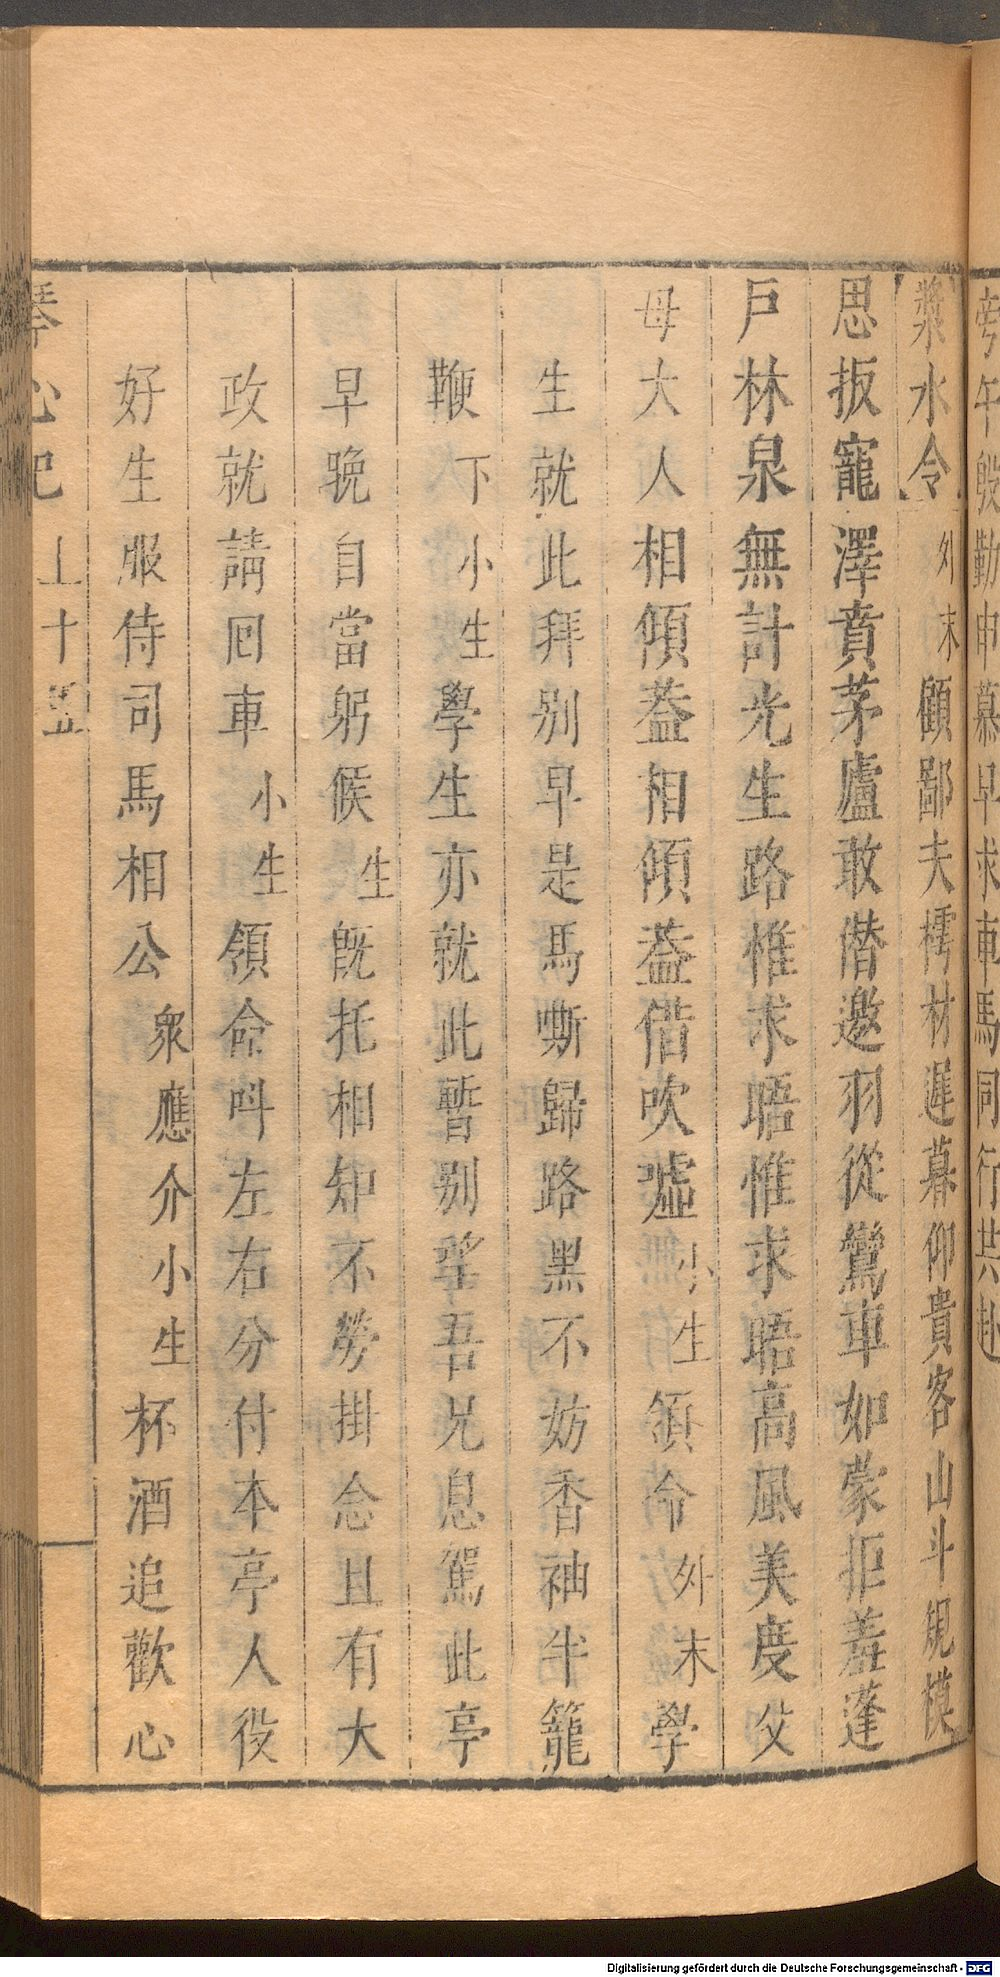 旁午殷勤申慕早求車馬同行共赴
漿水令外末顧鄙夫樗材遲暮仰貴客山斗䂓模
思扳寵澤賁茅廬敢僣邀羽從鸞車如蒙拒羞蓬
戶林泉無計光生路惟求晤惟求晤高風美度父
母大人相傾葢相傾葢借吹嘘小生領命外末學
生就此拜别早是馬嘶歸路黑不妨香袖半籠
鞭下小生學生亦就此暫别望吾兄息駕此亭
早晚自當躬候生旣托相知不勞掛念且有大
政就請囘車小生領命呌左右分付本亭人役
好生服侍司馬相公衆應介小生杯酒追歡心
琴心記 上 十五
Digitalisierung gefördert durch die Deutsche Forschungsgemeinschaft - DFG